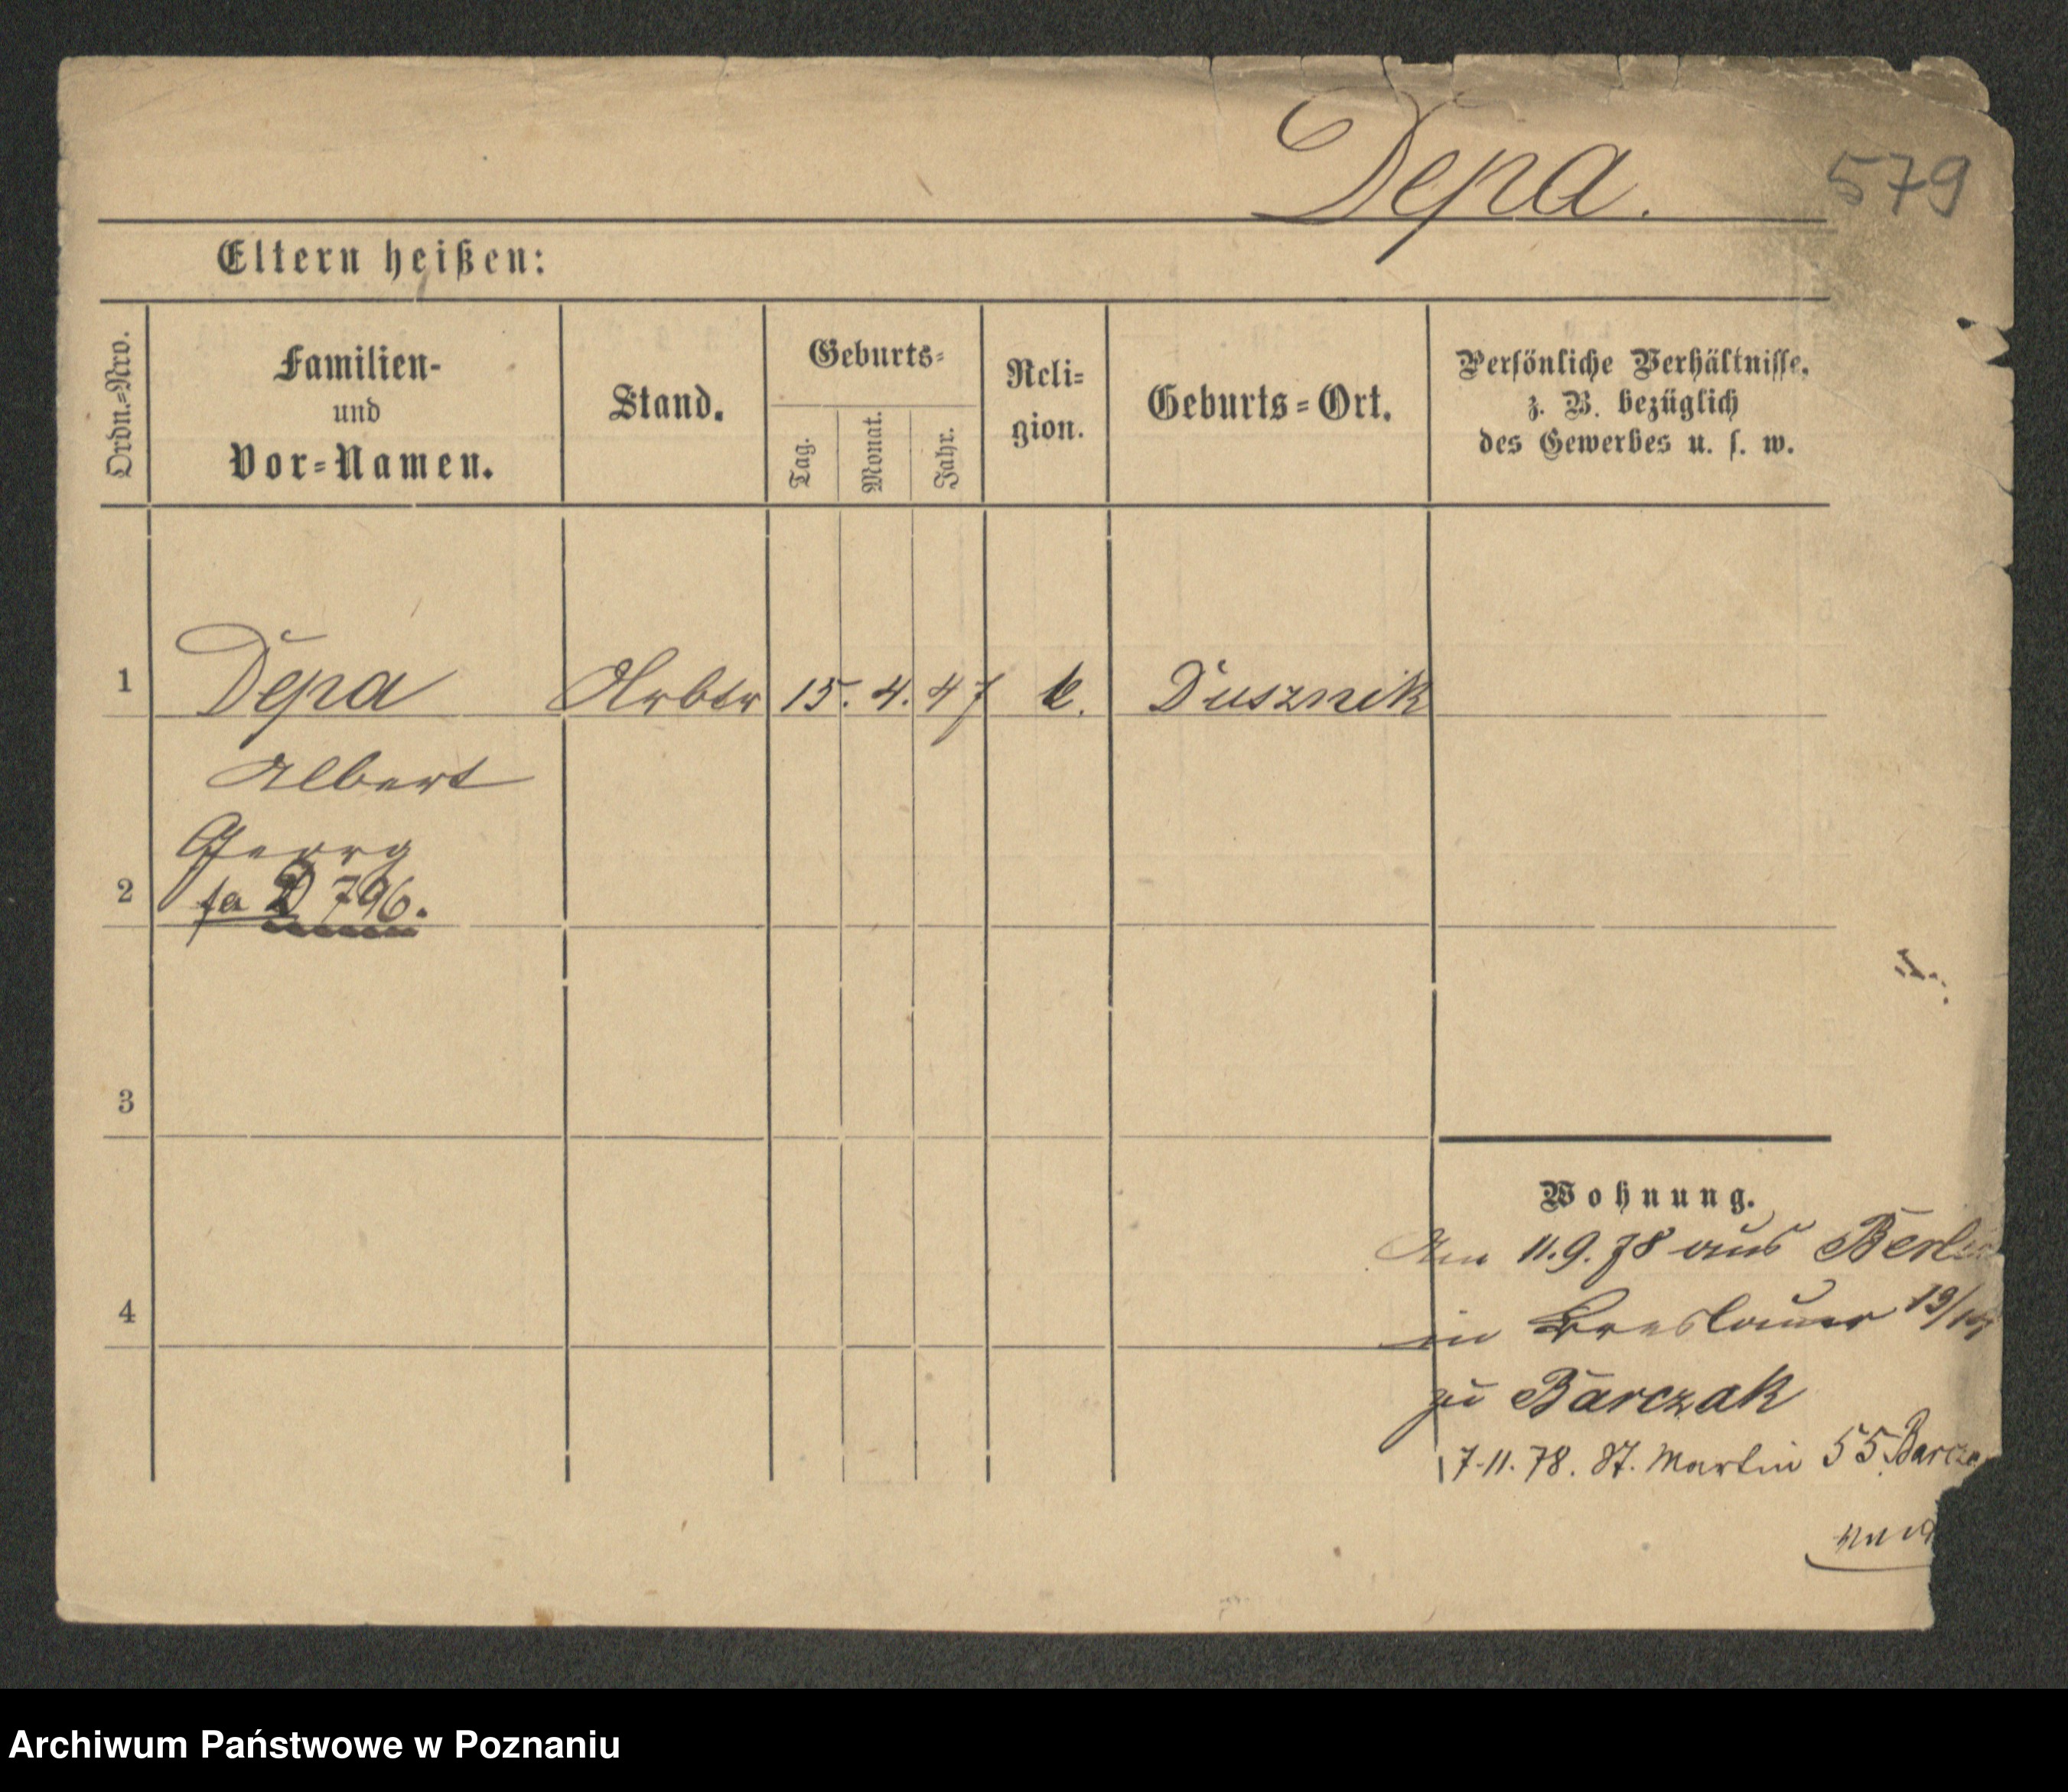 Depa.
579
Eltern heißen:
Ordn.-Nro.
Familien-
und
Vor-Namen.
Stand.
Geburts-
Tag.
Monat.
Jahr.
Reli-
gion.
Geburts-Ort.
Persönliche Verhältnisse,
z. B. bezüglich
des Gewerbes u. s. w.
1 Depa Arbtr 15. 4. 47 k. Dusznik
Albert
Georg
2 fa D 796.
3
Wohnung.
Am 11.9.78 aus Berlin
4
in Breslauer 19/
zu Barczak
7.11.78. St. Martin 55.
Archiwum Państwowe w Poznaniu